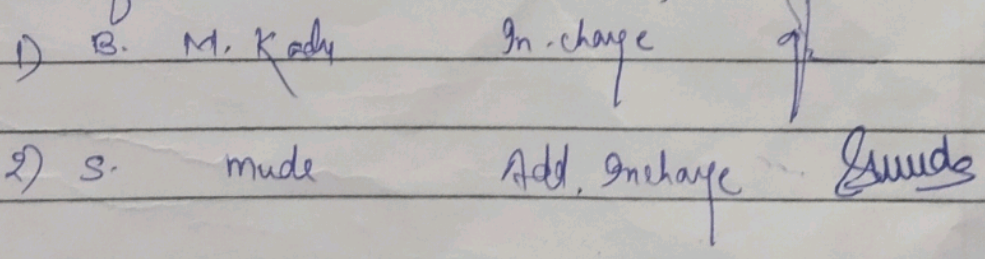 1) B. M. Kadu In-charge
2) S. mude Add. Incharge Smude